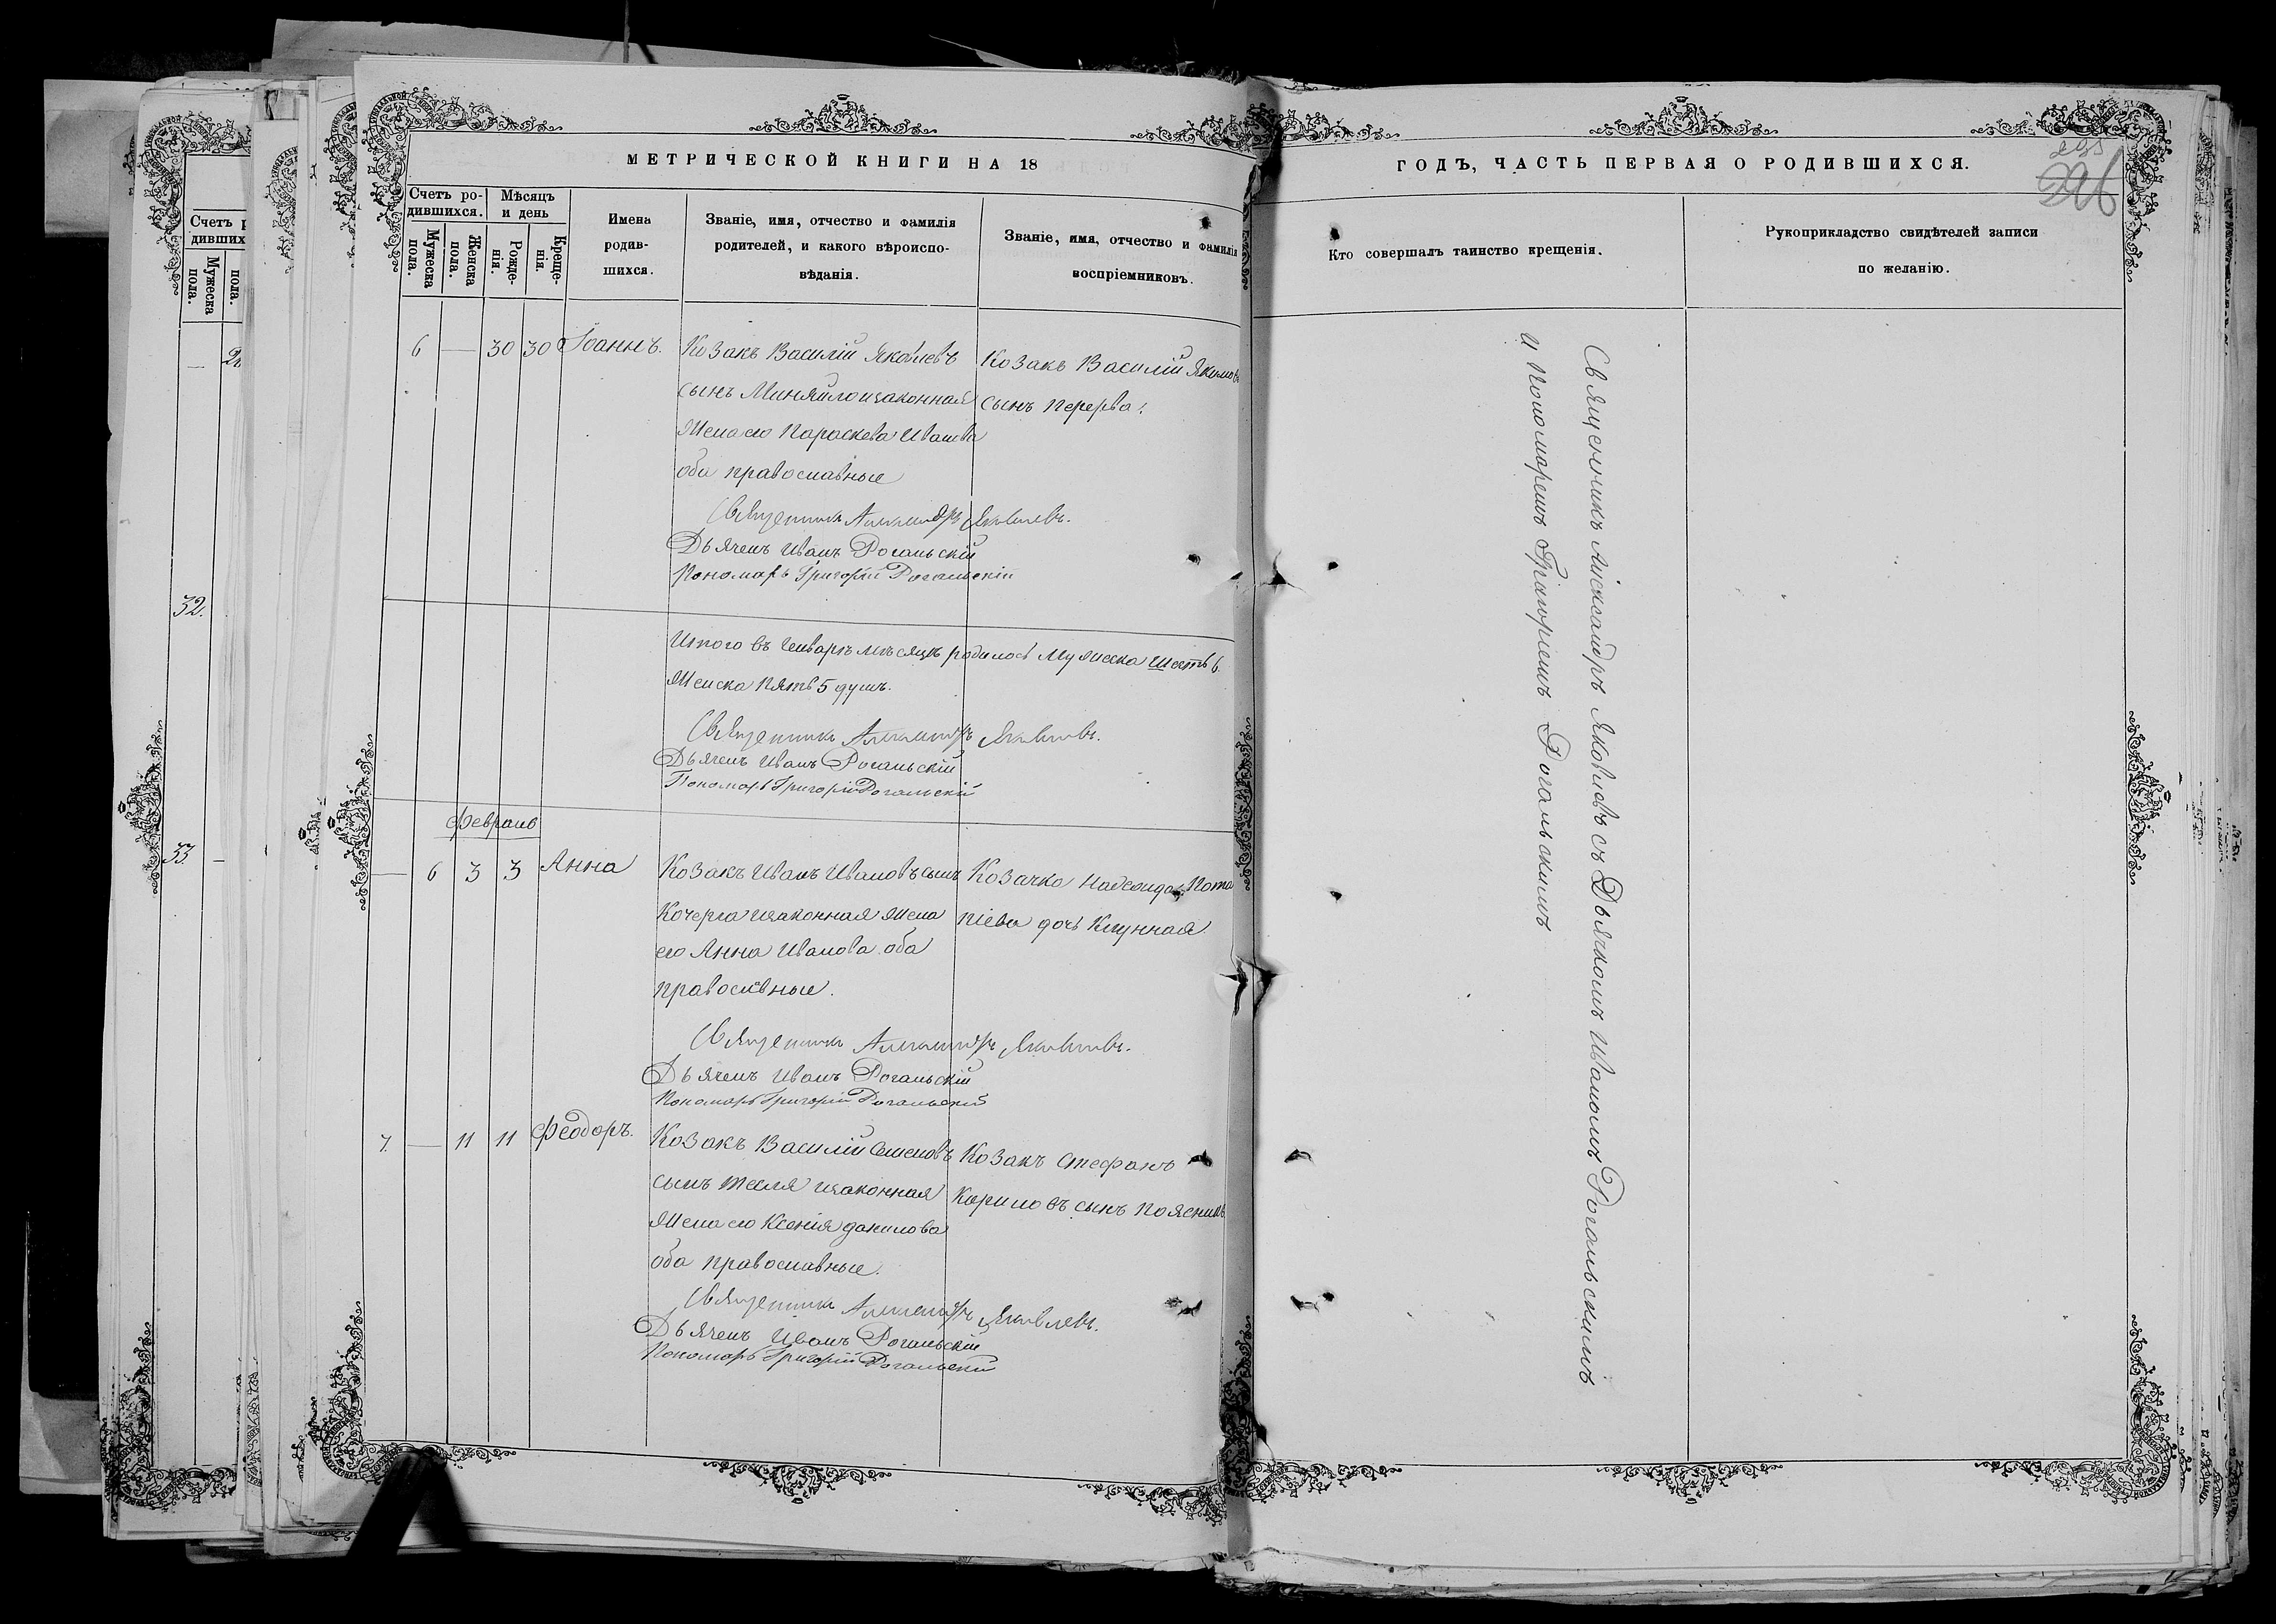 МЕТРИЧЕСКОЙ КНИГИ НА 18
ГОДЪ, ЧАСТЬ ПЕРВАЯ О РОДИВШИХСЯ.
295
Счетъ ро-
дившихся.
Мужеска
пола.
Женска
пола.
Мѣсяцъ
и день
Рожде-
нія.
Креще-
нія.
Имена
родив-
шихся.
Званіе, имя, отчество и фамилія
родителей, и какого вѣроиспо-
вѣданія.
Званіе, имя, отчество и фамилія
воспріемниковъ.
Кто совершалъ таинство крещенія.
Рукоприкладство свидѣтелей записи
по желанію.
6 — 30 30 Іоаннъ.
Козакъ Василій Яковлевъ
сынъ Миняйло изаконная
жена его Параскева Иванова
оба православные
Козакъ Василій Якимовъ
сынъ Перерва.
Священникъ Александръ Яковлевъ.
Дьячекъ Иванъ Рогальскій
Пономарь Григорій Рогальскій
Итого въ Генварѣ мѣсяцѣ родилось Мужеска шесть 6.
Женска пять 5 душъ.
Священникъ Александръ Яковлевъ.
Дьячекъ Иванъ Рогальскій
Пономарь Григорій Рогальскій
Февраль
— 6 3 3 Анна
Козакъ Иванъ Ивановъ сынъ
Кочерга изаконная жена
его Анна Иванова оба
православные.
Козачка Надежда Пота
піева дочь
Священникъ Александръ Яковлевъ.
Дьячекъ Иванъ Рогальскій
Пономарь Григорій Рогальскій
7. — 11 11 Феодоръ.
Козакъ Василій Семеновъ
сынъ Тесля изаконная
жена его Ксенія Данилова
оба православные.
Козакъ Стефанъ
Кириловъ сынъ
Священникъ Александръ Яковлевъ.
Дьячекъ Иванъ Рогальскій
Пономарь Григорій Рогальскій
Священникъ Александръ Яковлевъ съ Дьячкомъ Иваномъ Рогальскимъ
и Пономаремъ Григоріемъ Рогальскимъ
Счетъ р
дивших
Мужеска
пола.
пола.
— 2
32.
33. —